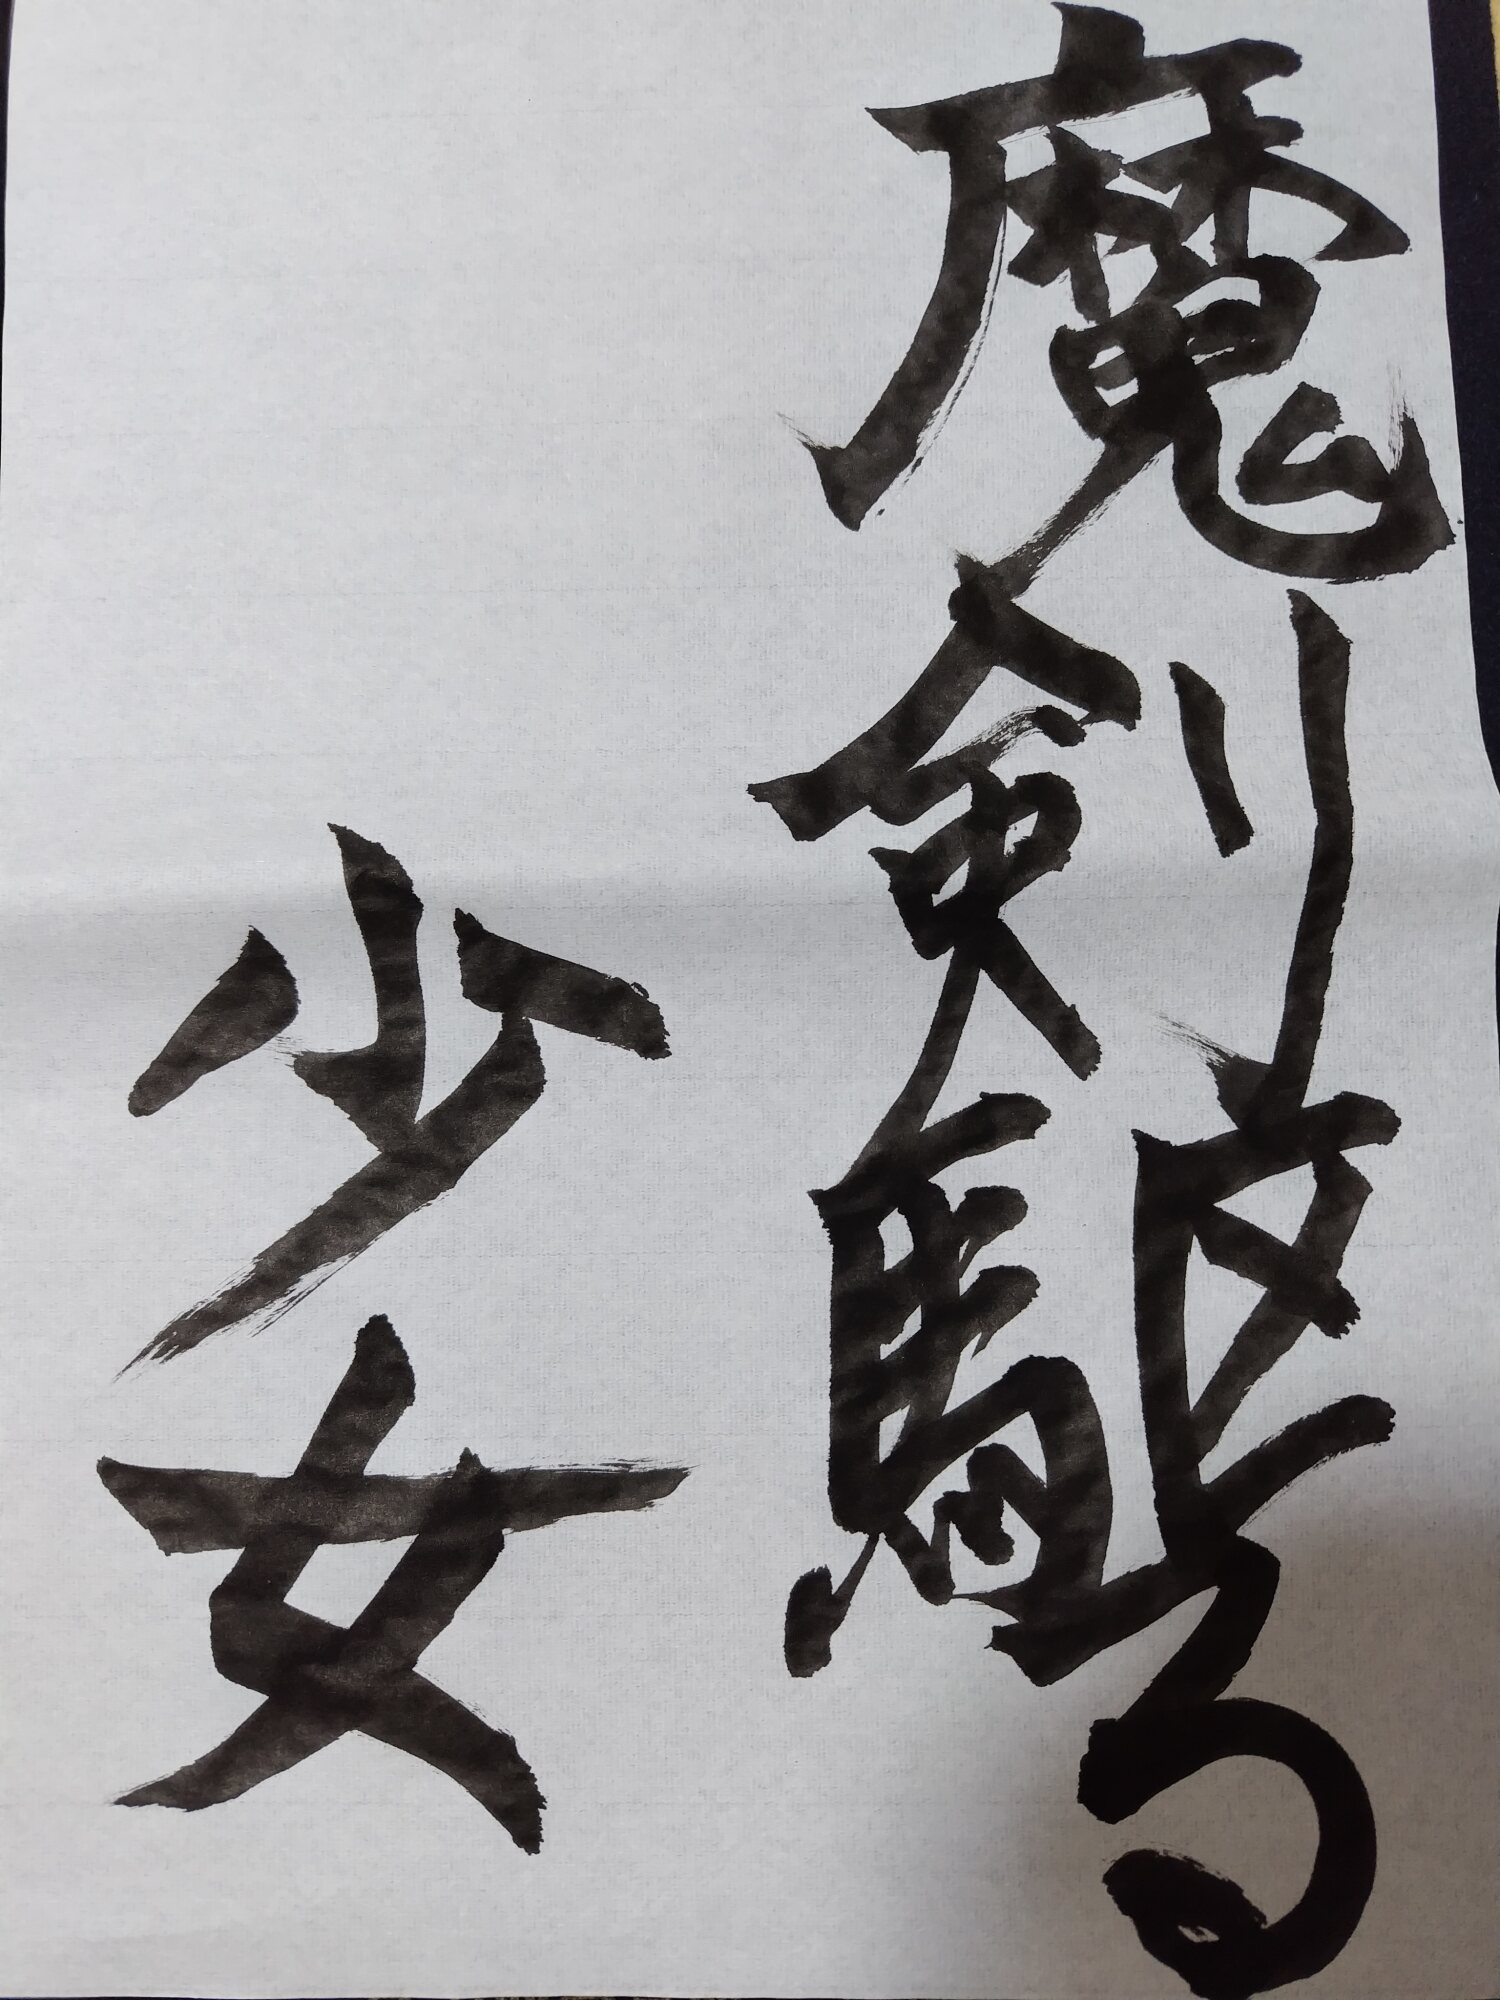 魔剣駆る
少女